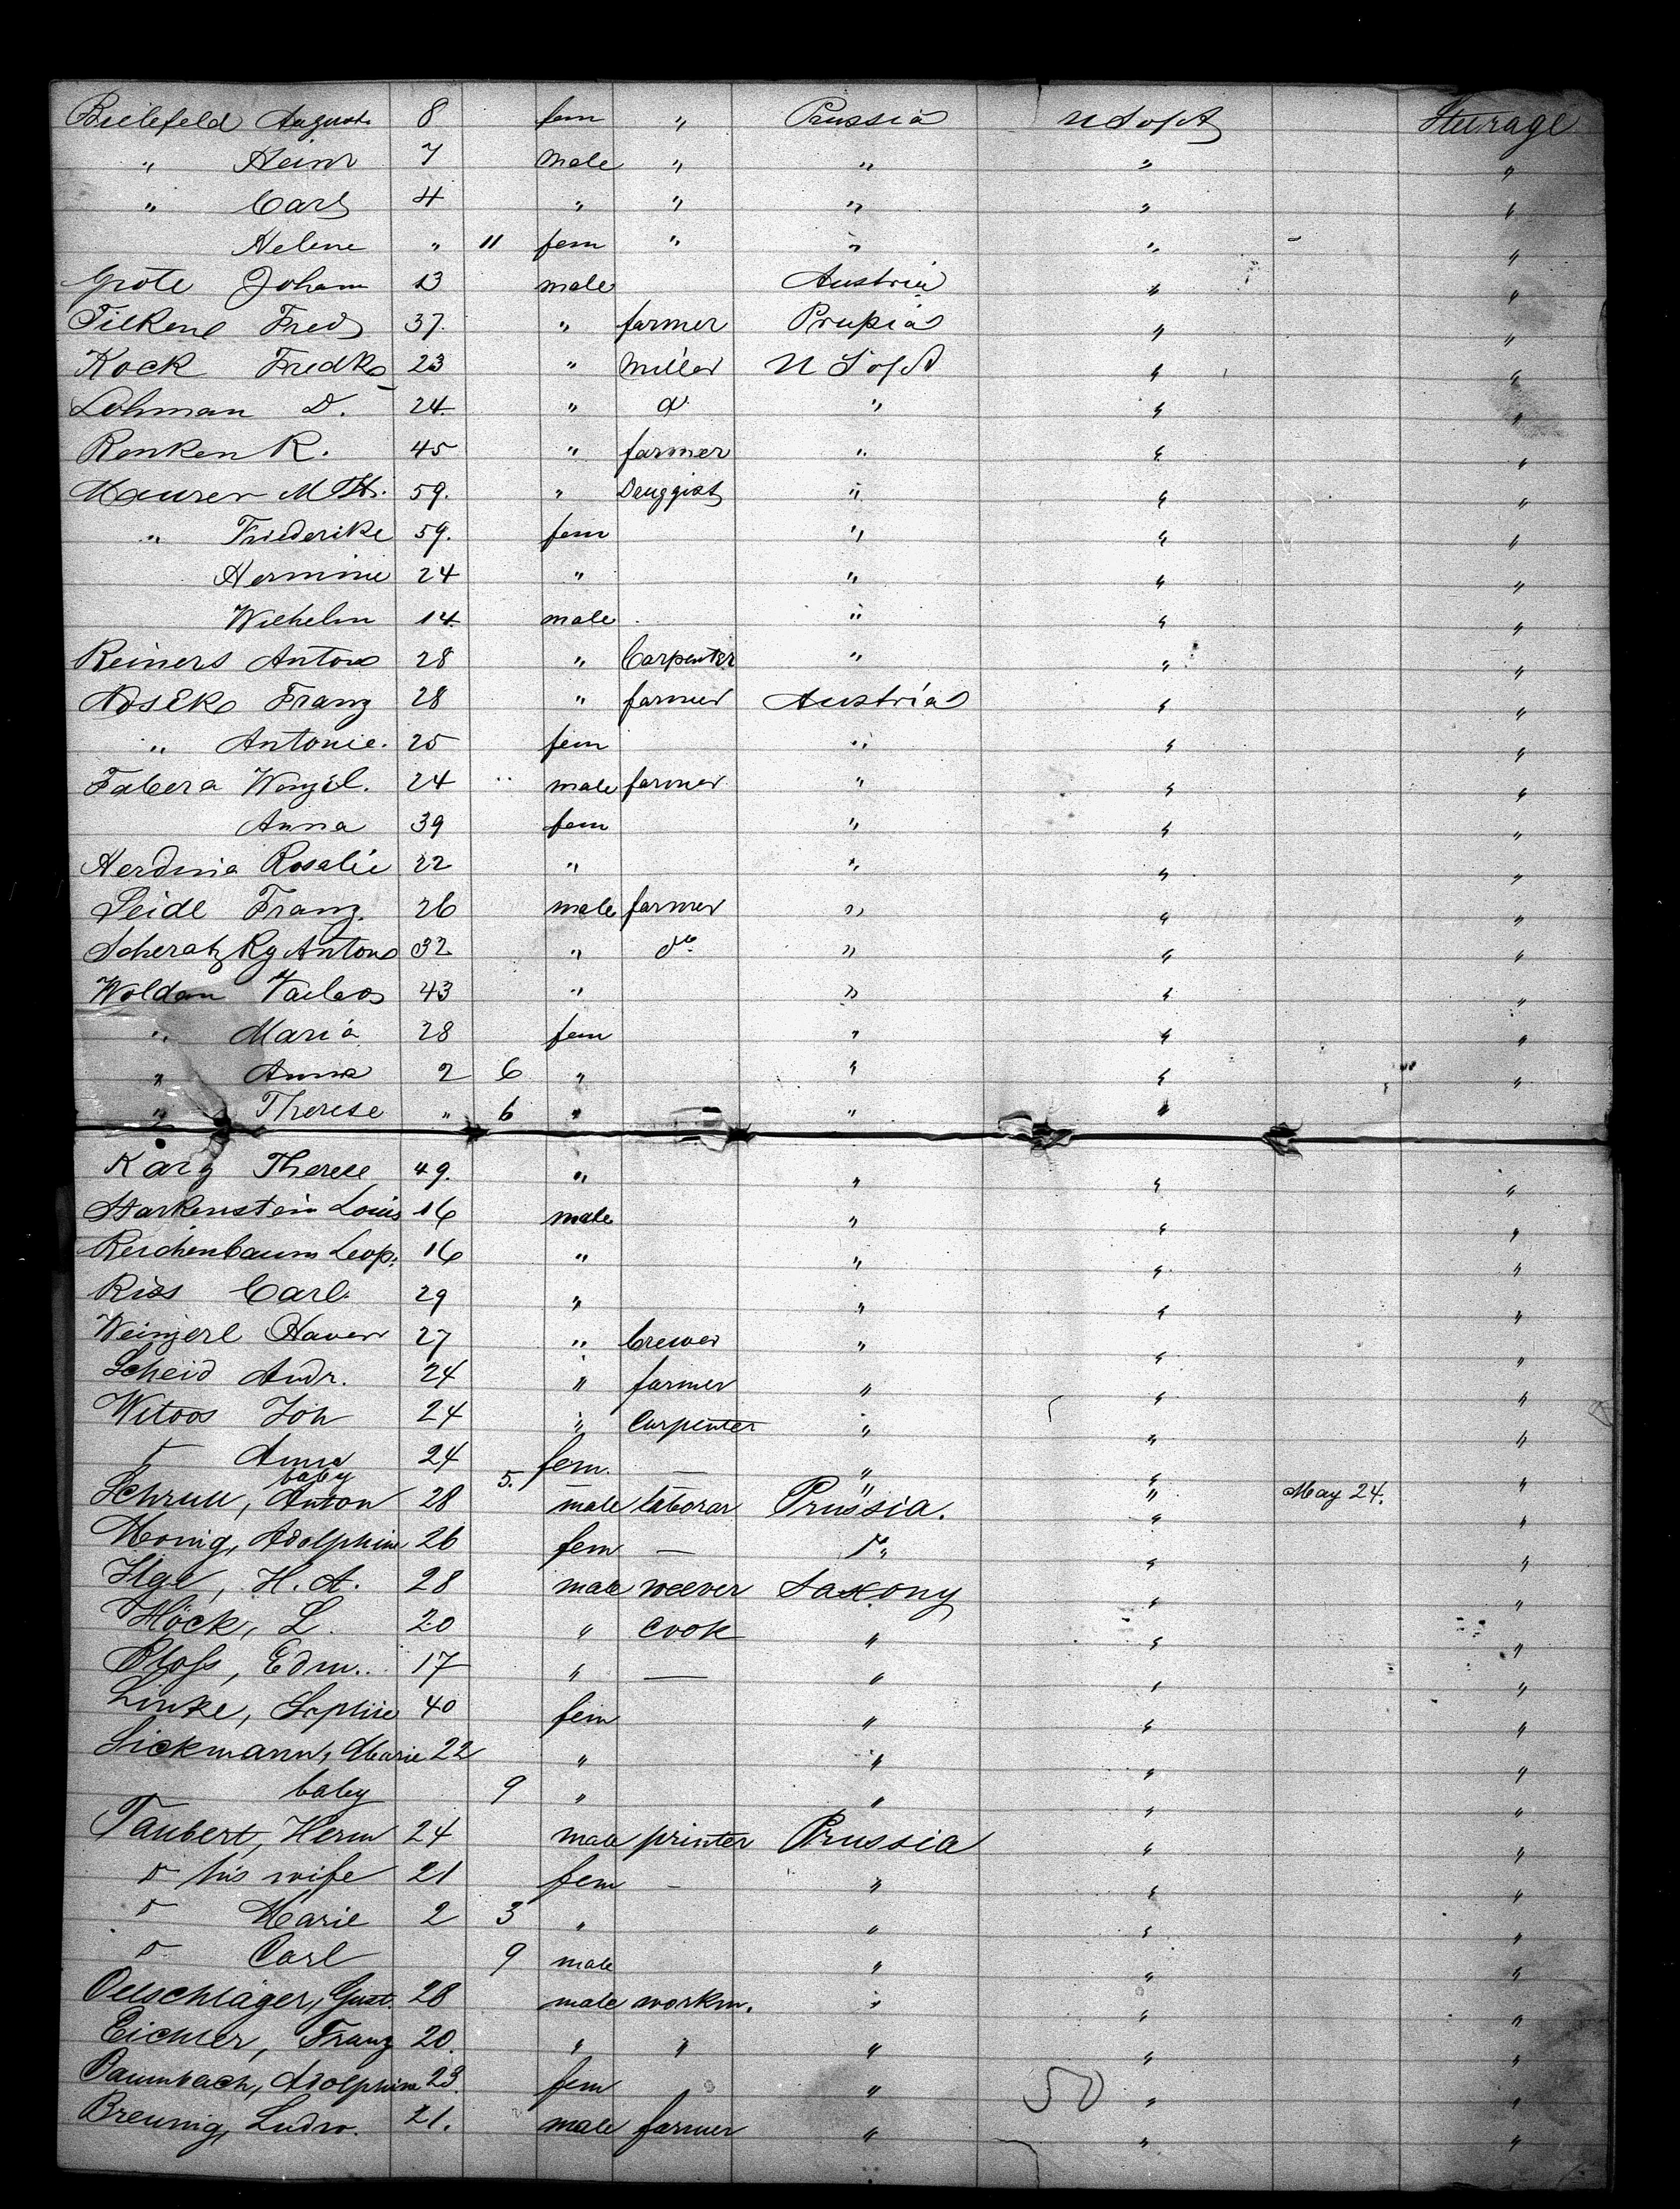 Bielefeld August. 8 fem " Prussia U S of A Steurage
" Heinr 7 male " " " "
" Carl 4 " " " " "
Helene " 11 fem " " " "
Grote Johann 13 male Austria " "
Tilkene Fred 37. " farmer Prussia " "
Kock Fredk 23 " Miller U S of A " "
Lohman D. 24. " do " " "
Renken R. 45 " farmer " " "
Maurer M Th. 59. " Druggist " " "
" Friederike 59. fem " " "
Hermine 24 " " " "
Wilhelm 14. male " " "
Reiners Anton 28 " Carpenter " " "
Noseko Franz 28 " farmer Austria " "
" Antonie. 25 fem " " "
Fabera Wenzel. 24 male farmer " " "
Anna 39 fem " " "
Herdina Rosalie 22 " " " "
Seidl Franz. 26 male farmer " " "
Scheratzky Anton 32 " do " " "
Woldan Vaclav 43 " " " "
" Maria 28 fem " " "
" Anna 2 6 " " " "
" Therese " 6 " " " "
Karg Therese 49. " " " "
Starkenstein Louis 16 male " " "
Reichenbaum Leop. 16 " " " "
Riss Carl. 29 " " " "
Weinzerl Xaver 27 " brewer " " "
Scheid Andr. 24 " farmer " " "
Witoos Joh 24 " Carpenter " " "
do Anna 24 fem. — " " "
baby 5. " " May 24.
Schruu, Anton 28 male laborar Prussia. " "
Monig, Adolphine 26 fem — do " "
Ilge, H. A. 28 male weever Saxony " "
Höck, L. 20 " cook " " "
Bloss, Edm.. 17 " — " " "
Linke, Sophie 40 fem " " "
Sickmann, Marie 22 " " " "
baby 9 " " " "
Taubert, Herm 24 male printer Prussia " "
do his wife 21 fem - " " "
do Marie 2 3 " " " "
do Carl 9 male " " "
Oelschläger, Gust. 28 male workm. " " "
Eichler, Franz 20. " " " " "
Baumbach, Adolphine 23. fem " 50 " "
Breunig, Ludw. 21. male farmer " " "